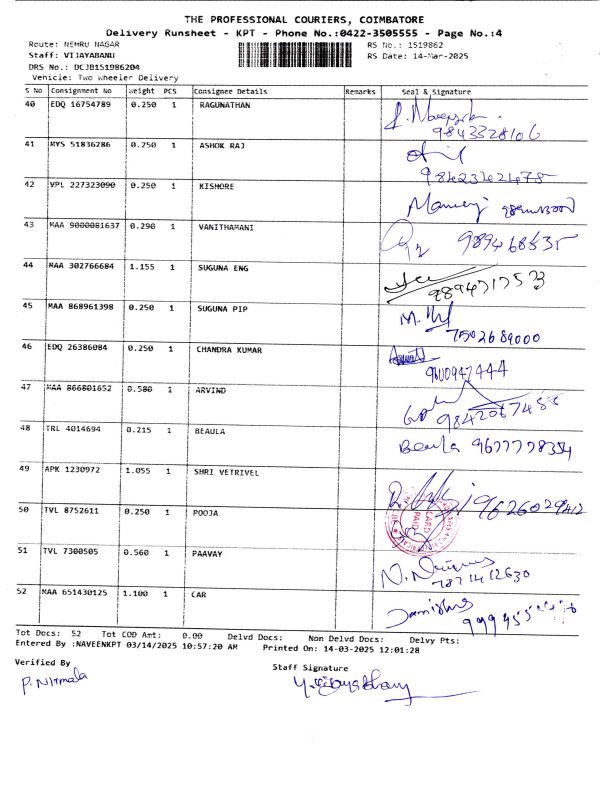 THE PROFESSIONAL COURIERS, COIMBATORE
Delivery Runsheet - KPT - Phone No.:0422-3505555 - Page No.:4
Route: NEHRU NAGAR RS No.: 1519862
Staff: VIJAYABANU RS Date: 14-Mar-2025
DRS No.: DCJB151986204
Vehicle: Two Wheeler Delivery
S No Consignment No Weight PCS Consignee Details Remarks Seal & Signature
40 EDQ 16754789 0.250 1 RAGUNATHAN
9843328106
41 MYS 51836286 0.250 1 ASHOK RAJ
42 VPL 227323090 0.250 1 KISHORE
43 MAA 9000081637 0.290 1 VANITHAMANI
44 MAA 302766684 1.155 1 SUGUNA ENG
45 MAA 868961398 0.250 1 SUGUNA PIP
7502689000
46 EDQ 26386084 0.250 1 CHANDRA KUMAR
9600947444
47 MAA 866801652 0.580 1 ARVIND
48 TRL 4014694 0.215 1 BEAULA Beaula
49 APK 1230972 1.055 1 SHRI VETRIVEL
50 TVL 8752611 0.250 1 POOJA
51 TVL 7300505 0.560 1 PAAVAY
7871412630
52 MAA 651430125 1.100 1 CAR
Tot Docs: 52 Tot COD Amt: 0.00 Delvd Docs: Non Delvd Docs: Delvy Pts:
Entered By :NAVEENKPT 03/14/2025 10:57:20 AM Printed On: 14-03-2025 12:01:28
Verified By Staff Signature
P. Nirmala